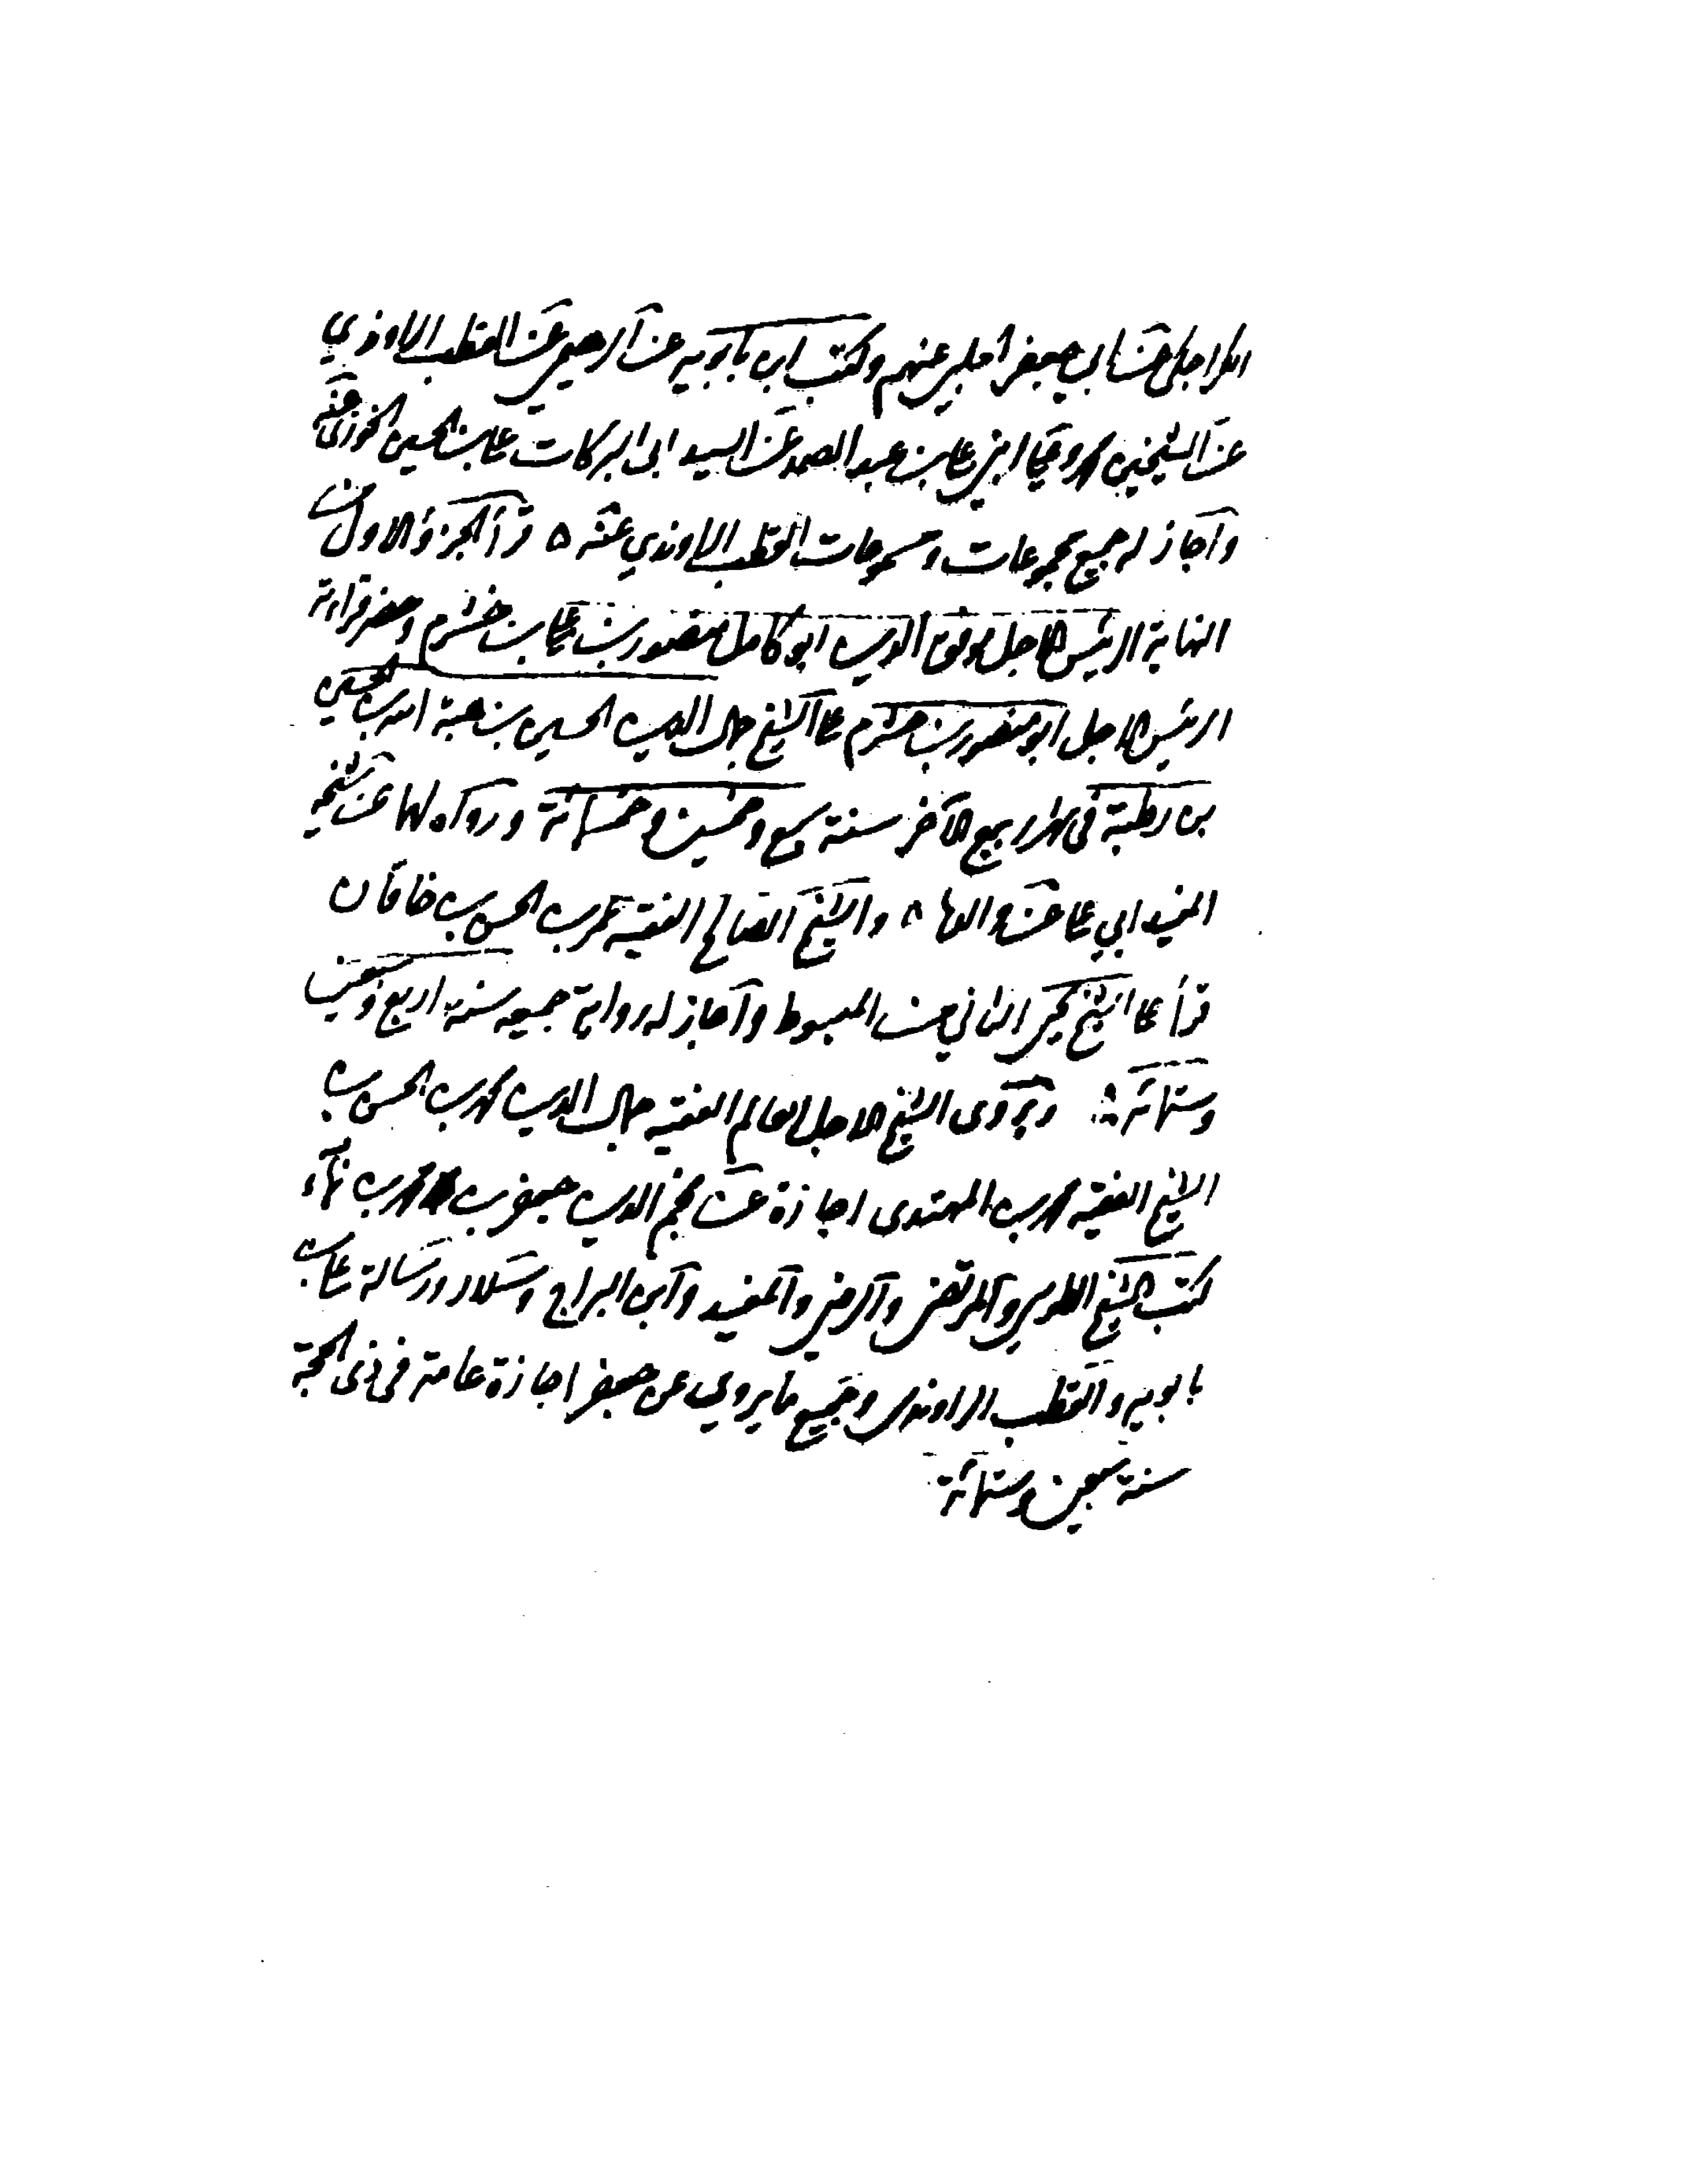 الكراجكي عن ابي جعفر الحلبي عنهم وكتب ابن بابويه عن ابي جعفر عن القطب الراوندي
عن الشيخين محمد وعلي ابني علي بن عبد الصمد عن السيد ابي البركات علي بن الحسين الخوزي عنه
وأجاز له جميع مجموعات ومسموعات القطب الراوندي عنه ٥ قرأ الجزؤ الاول من
النهاية الرئيس الاجل موفق الدين ابو كامل منصور بن علي بن خشرم وحضر قراءته
الرئيس الاجل ابو منصور بن خشرم علي الشيخ جمال الدين الحسين بن هبة الله بن الحسين
بن رطبة في شهر ربيع الآخر سنة سبع وخمسين وخمسمائة ورواه لها عن شيخه
المفيد ابي علي عن والده ٥ والشيخ الصالح الفقيه محمد بن الحسن بن خاقان
قرأ علي الشيخ يحيى الثاني من المبسوط وأجاز له رواية جميعه سنة اربع وسبعين
وستمائة ٥ ويروى الشيخ الاجل العالم الفقيه جمال الدين محمد بن الحسن بن
الشيخ الفقيه محمد بن المهتدى اجازة عن نجم الدين جعفر بن محمد بن نماء
كتب الشيخ الطوسي والمرتضى والرضي والمفيد وابن البراج وسلار ورسالة علي بن
بابويه والقطب الراوندى وجميع ما يروي عن جعفر اجازة عامة في ذى الحجة
سنة سبعين وستمائة